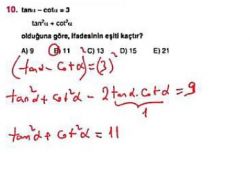 10. tanα – cotα = 3
tan²α + cot²α
olduğuna göre, ifadesinin eşiti kaçtır?
A) 9 B) 11 C) 13 D) 15 E) 21
(tanα - cotα)² = (3)²
tan²α + cot²α - 2tanα.cotα = 9
1
tan²α + cot²α = 11